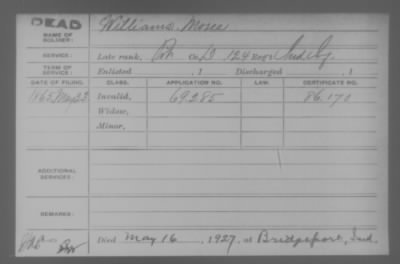 DEAD
NAME OF SOLDIER: Williams, Moses
SERVICE: Late rank, Co. D 124 Reg't Ind. Inf.
TERM OF SERVICE: Enlisted , 1 Discharged , 1
DATE OF FILING. CLASS. APPLICATION NO. LAW. CERTIFICATE NO.
1865, May 22 Invalid, 69.285 86.170
Widow,
Minor,
ADDITIONAL SERVICES:
REMARKS:
Died May 16, 1927, at Bridgeport, Ind.